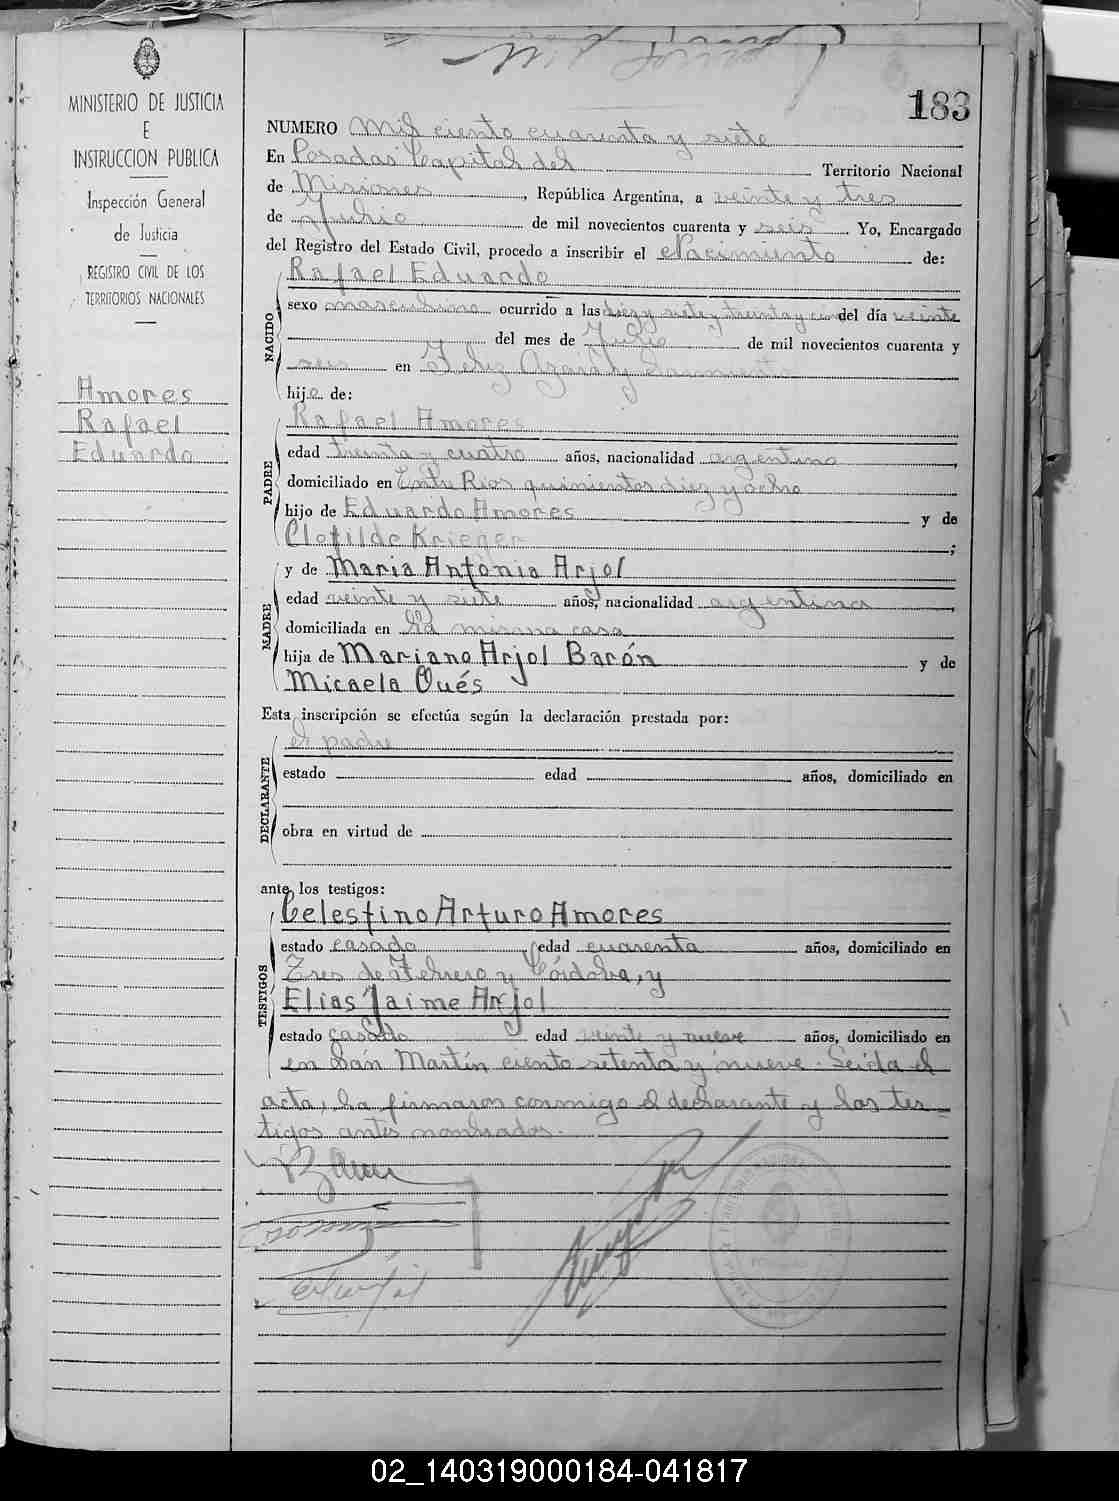 183
MINISTERIO DE JUSTICIA
E
INSTRUCCION PUBLICA
Inspección General
de Justicia
REGISTRO CIVIL DE LOS
TERRITORIOS NACIONALES
Amores
Rafael
Eduardo
NUMERO Mil ciento cuarenta y siete
En Posadas Capital del Territorio Nacional
de Misiones, República Argentina, a veinte y tres
de Julio de mil novecientos cuarenta y seis Yo, Encargado
del Registro del Estado Civil, procedo a inscribir el Nacimiento de:
NACIDO
Rafael Eduardo
sexo masculino ocurrido a las diez y siete y treinta y cinco del día veinte
del mes de Julio de mil novecientos cuarenta y
seis en Feliz Azara y Sarmiento
hijo de:
PADRE
Rafael Amores
edad treinta y cuatro años, nacionalidad argentino,
domiciliado en Entre Rios quinientos diez y ocho
hijo de Eduardo Amores y de
Clotilde Krieger;
MADRE
y de Maria Antonia Arjol
edad veinte y siete años, nacionalidad argentina,
domiciliada en la misma casa
hija de Mariano Arjol Barón y de
Micaela Oués
Esta inscripción se efectúa según la declaración prestada por:
DECLARANTE
el padre
estado edad años, domiciliado en
obra en virtud de
ante los testigos:
TESTIGOS
Celestino Arturo Amores
estado casado edad cuarenta años, domiciliado en
Tres de Febrero y Córdoba, y
Elias Jaime Arjol
estado casado edad veinte y nueve años, domiciliado en
en San Martín ciento setenta y nueve. Leida el
acta, la firmaron conmigo el declarante y los tes-
tigos antes nombrados.
02_140319000184-041817